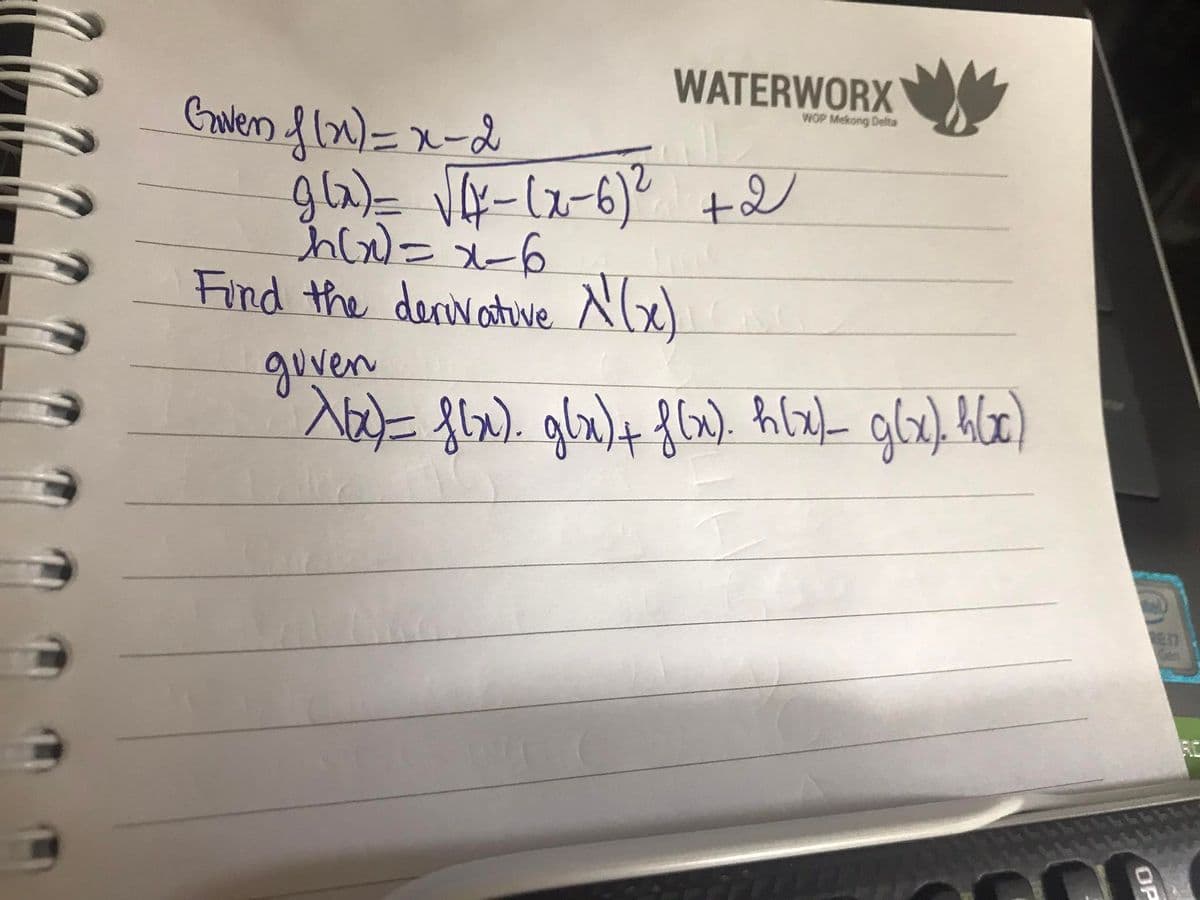 WATERWORX
WOP Mekong Delta
Given f(x) = x-2
g(x) = √(4-(x-6)² +2
h(x) = x-6
Find the derivative λ'(x)
given
λ(x) = f(x). g(x) + f(x). h(x) - g(x). h(x)
OP